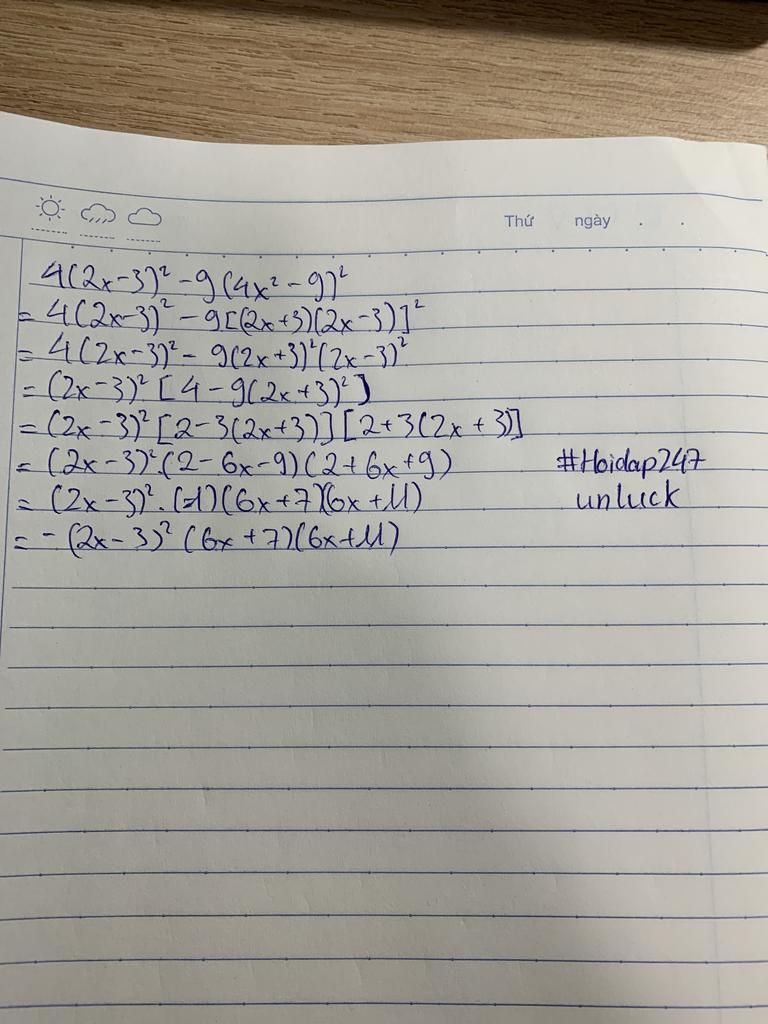 Thứ ngày . .
4(2x-3)² - 9(4x² - 9)²
= 4(2x-3)² - 9[(2x+3)(2x-3)]²
= 4(2x-3)² - 9(2x+3)²(2x-3)²
= (2x-3)² [4 - 9(2x+3)²]
= (2x-3)² [2-3(2x+3)][2+3(2x+3)]
= (2x-3)².(2-6x-9)(2+6x+9)
#Hoidap247
= (2x-3)².(-1)(6x+7)(6x+11)
unluck
= -(2x-3)² (6x+7)(6x+11)